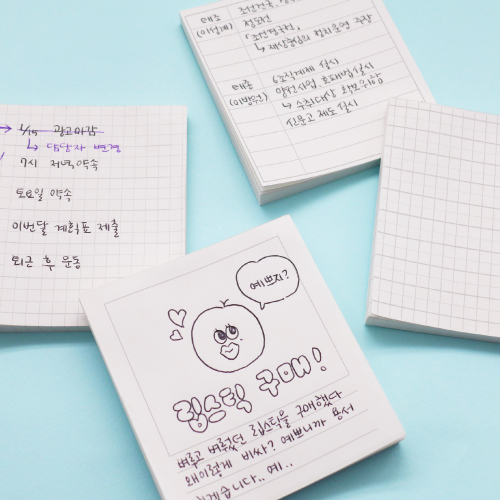 태조 조선건국,
(이성계) 정도전
「조선경국전」
↳ 재상중심의 정치운영 주장
태종 6조직계제 실시
(이방원) 양전사업, 호패법 실시
↳ 수취대상 확보위함
신문고 제도 실시
→ 1/15 광고마감
↳ 담당자 변경
7시 저녁약속
토요일 약속
이번달 계획표 제출
퇴근 후 운동
예쁘지?
립스틱 구매!
벼루고 벼뤘던 립스틱을 구매했다
왜이렇게 비싸? 예쁘니까 용서
하겠습니다.. 예..